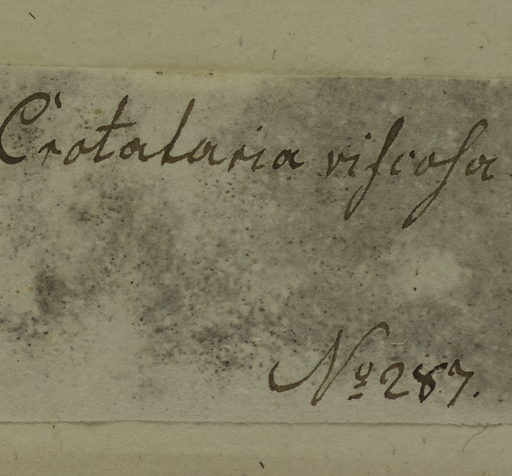 Crotalaria viſcoſa.
Nº 287.